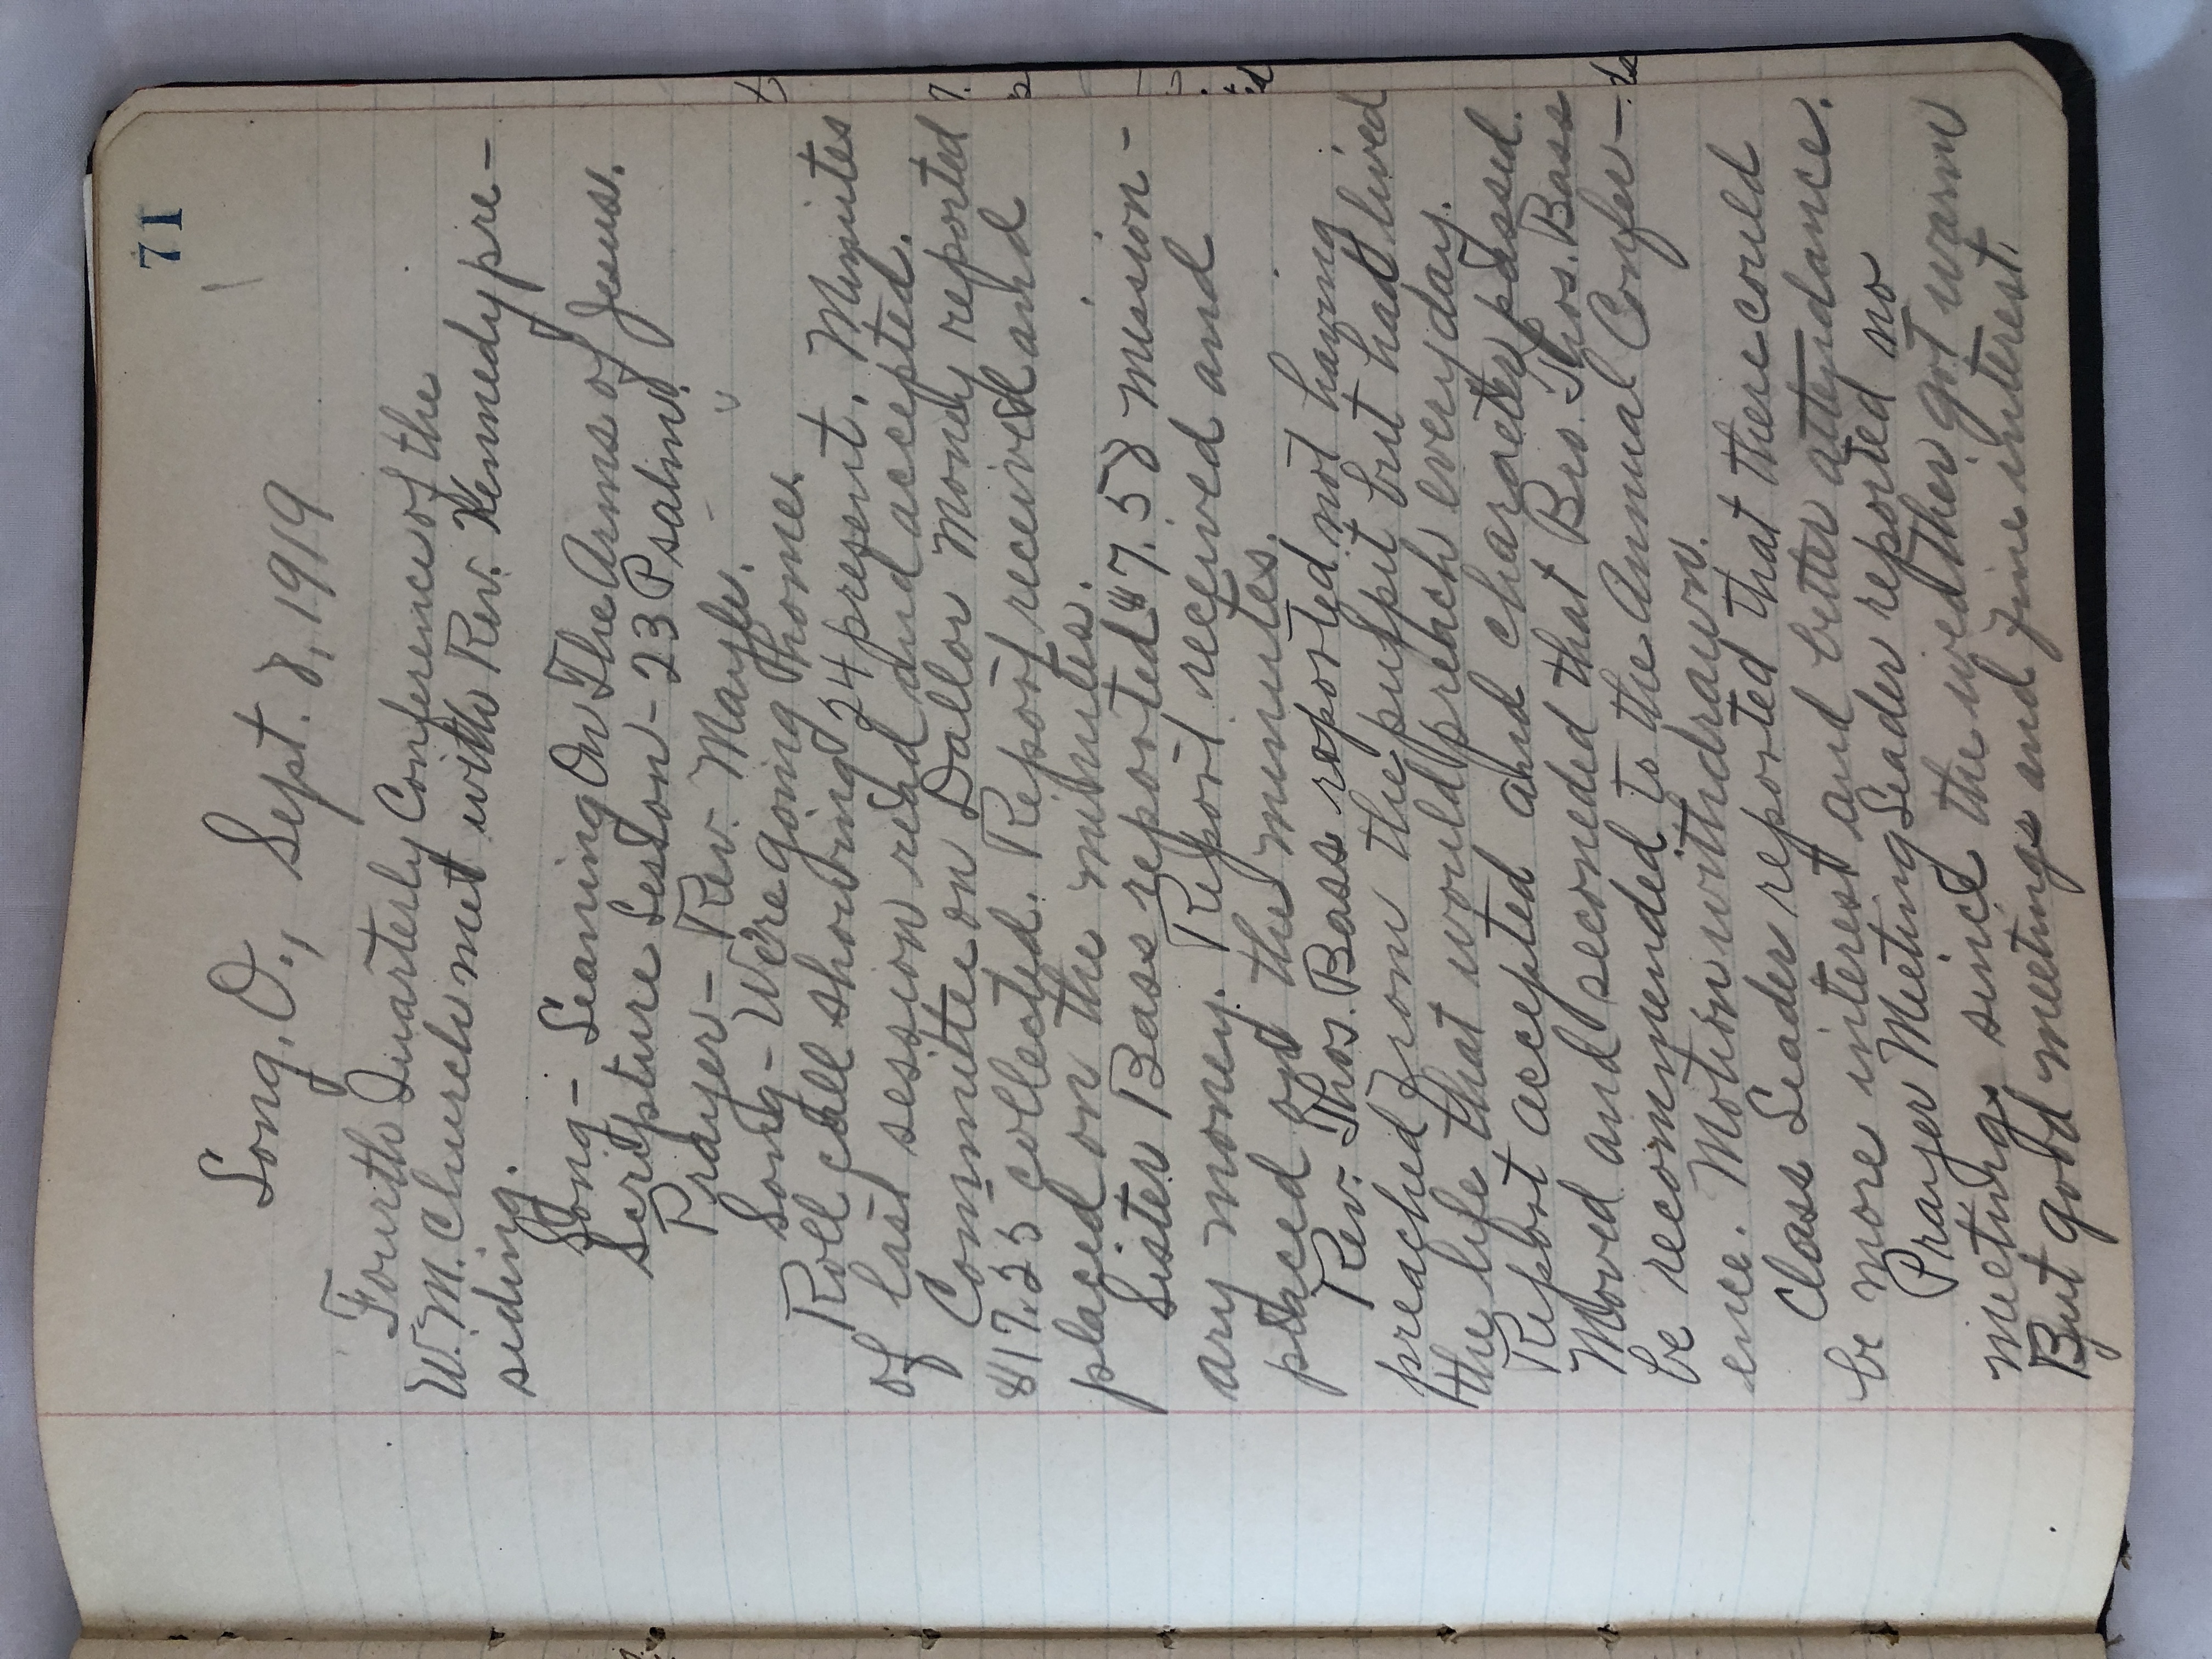 71
Song, O., Sept. 8, 1919
Fourth Quarterly Conference of the
W. M. Church met with Rev. Kennedy pre-
siding.
Song - Leaning On The Arms of Jesus.
Scripture Lesson - 23 Psalm.
Prayer - Rev. Mayle.
Song - We're going home.
Roll call showing 24 present. Minutes
of last session read and accepted.
Committee on Dallor Money reported
$17.25 collected. Report received and
placed on the minutes.
Sister Bass reported $7.58 mission-
ary money. Report received and
placed on the minutes.
Rev. Thos. Bass reported not having
preached from the pulpit but had lived
the life that would preach everyday.
Report accepted and character passed.
Moved and seconeded that Bro. Thos. Bass
be recommended to the Annual Confer-
ence. Motion withdrawn.
Class Leader reported that there could
be more interest and better attendance.
Prayer Meeting Leader reported no
meetings since the weather got warm
But good meetings and fine interest.